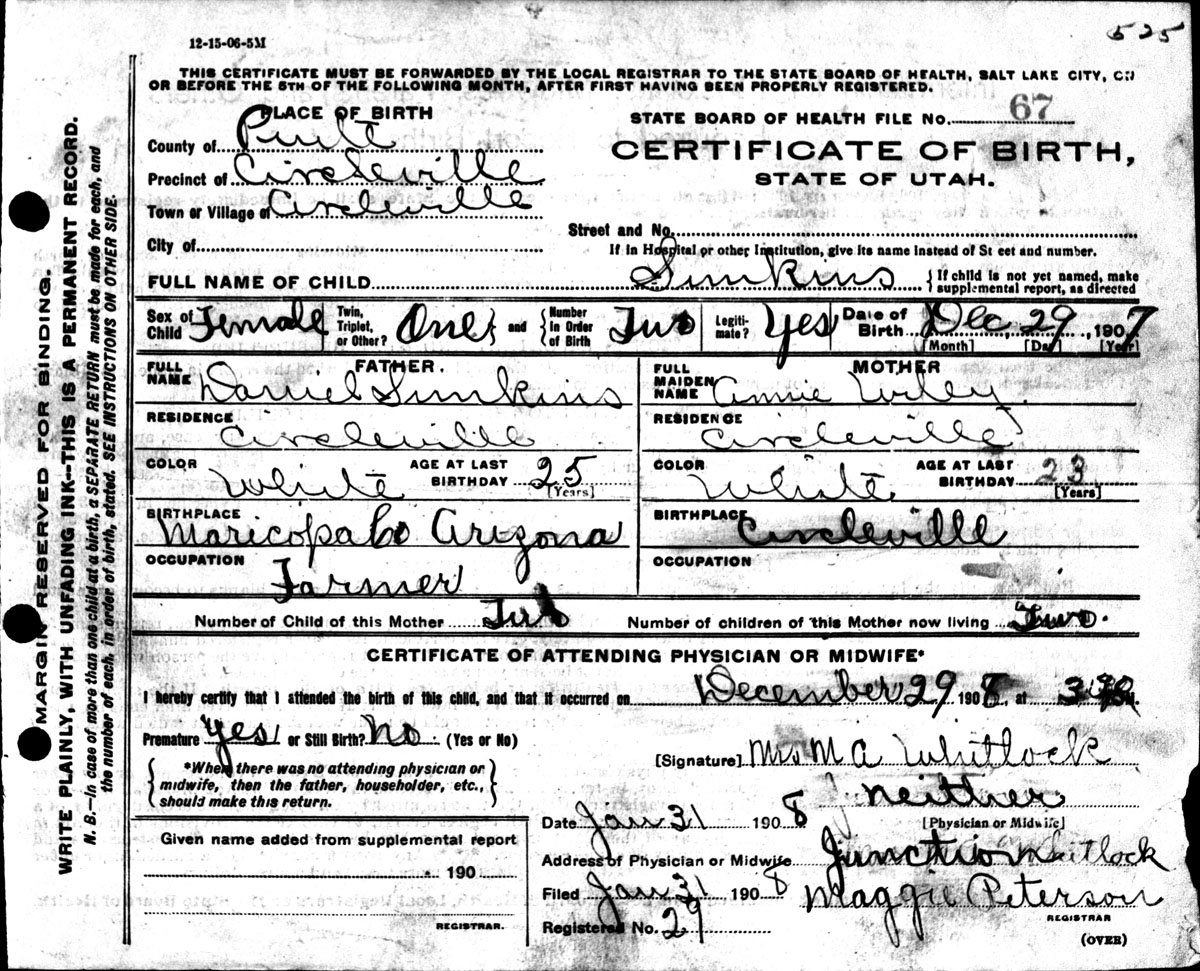 525
12-15-06-5M
THIS CERTIFICATE MUST BE FORWARDED BY THE LOCAL REGISTRAR TO THE STATE BOARD OF HEALTH, SALT LAKE CITY, ON
OR BEFORE THE 5TH OF THE FOLLOWING MONTH, AFTER FIRST HAVING BEEN PROPERLY REGISTERED.
PLACE OF BIRTH
STATE BOARD OF HEALTH FILE NO. 67
County of Piute
CERTIFICATE OF BIRTH,
Precinct of Circleville
STATE OF UTAH.
Town or Village of Circleville
Street and No.
City of
If in Hospital or other Institution, give its name instead of St eet and number.
FULL NAME OF CHILD Simkins {If child is not yet named, make supplemental report, as directed
Sex of Child Female Twin, Triplet, or Other? One} and {Number In Order of Birth Two Legitimate? Yes Date of Birth Dec, 29, 1907
[Month] [Day] [Year]
FATHER.
FULL NAME Daniel Simkins
RESIDENCE Circleville
COLOR White AGE AT LAST BIRTHDAY 25
[Years]
BIRTHPLACE Maricopa Co Arizona
OCCUPATION Farmer
MOTHER
FULL MAIDEN NAME Annie Wiley
RESIDENCE Circleville
COLOR White AGE AT LAST BIRTHDAY 23
[Years]
BIRTHPLACE Circleville
OCCUPATION
Number of Child of this Mother Two Number of children of this Mother now living Two.
CERTIFICATE OF ATTENDING PHYSICIAN OR MIDWIFE*
I hereby certify that I attended the birth of this child, and that it occurred on December 29 1908, at
Premature Yes or Still Birth? No (Yes or No)
[Signature] Mrs M A Whitlock
{*When there was no attending physician or
midwife, then the father, householder, etc.,
should make this return.}
neither
[Physician or Midwife]
Date Jan 31 1908
Address of Physician or Midwife Junction Whitlock
Filed Jan 31 1908 Maggie Peterson
REGISTRAR
Registered No. 29
(OVER)
Given name added from supplemental report
190
REGISTRAR.
MARGIN RESERVED FOR BINDING.
WRITE PLAINLY, WITH UNFADING INK--THIS IS A PERMANENT RECORD.
N. B.--In case of more than one child at a birth, a SEPARATE RETURN must be made for each, and
the number of each, in order of birth, stated. SEE INSTRUCTIONS ON OTHER SIDE.